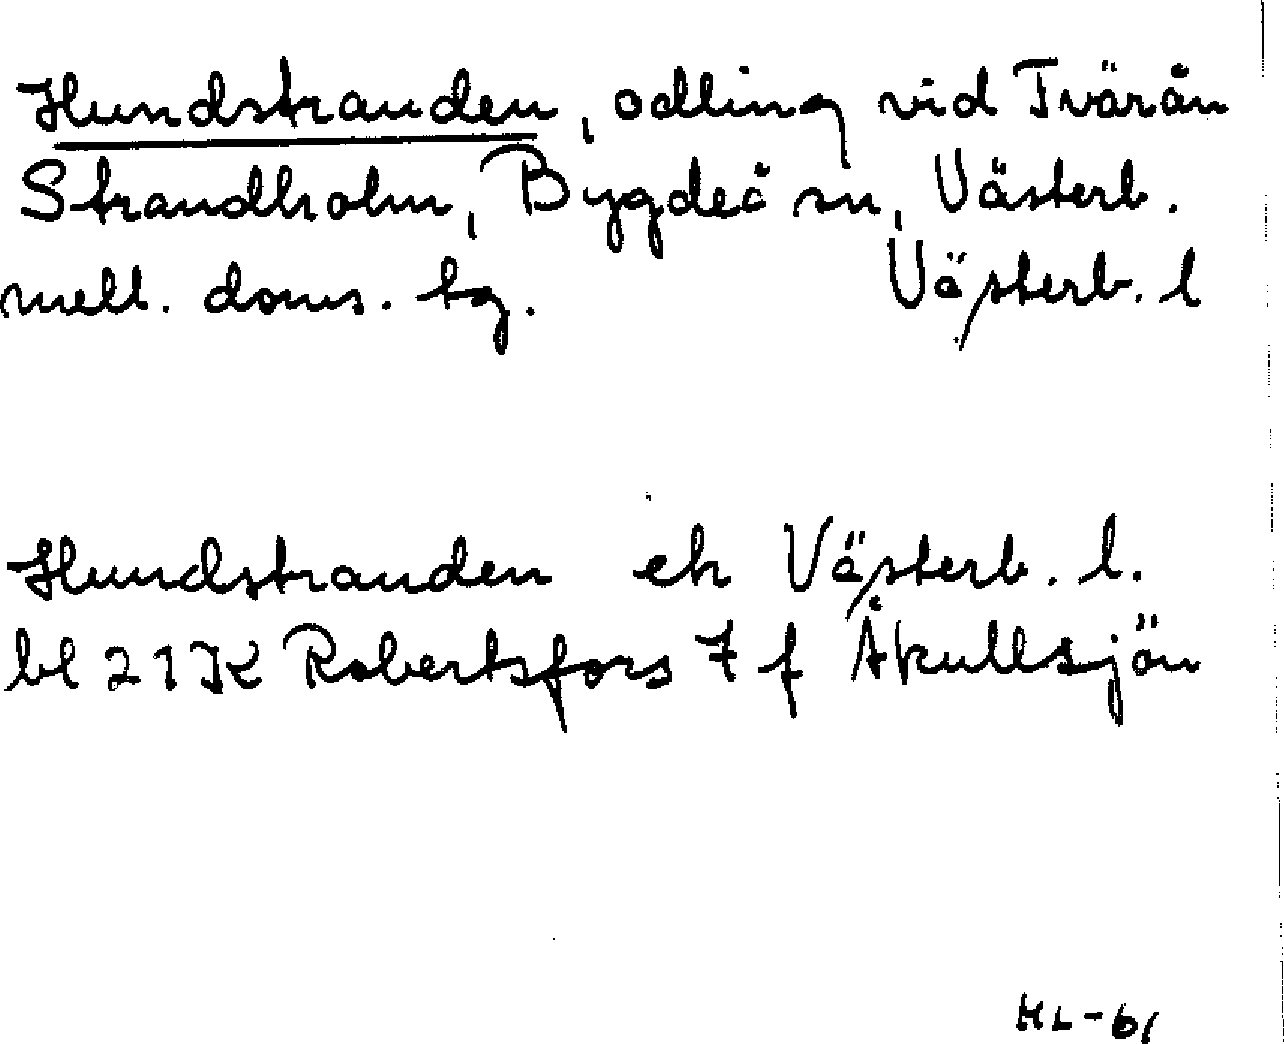 Hundstranden, odling vid Tvärån
Strandholm, Bygdeå sn, Västerb.
mell. doms. tg. Västerb. l
Hundstranden ek Västerb. l.
bl 21K Robertsfors 7 f Åkullsjön
HL-61